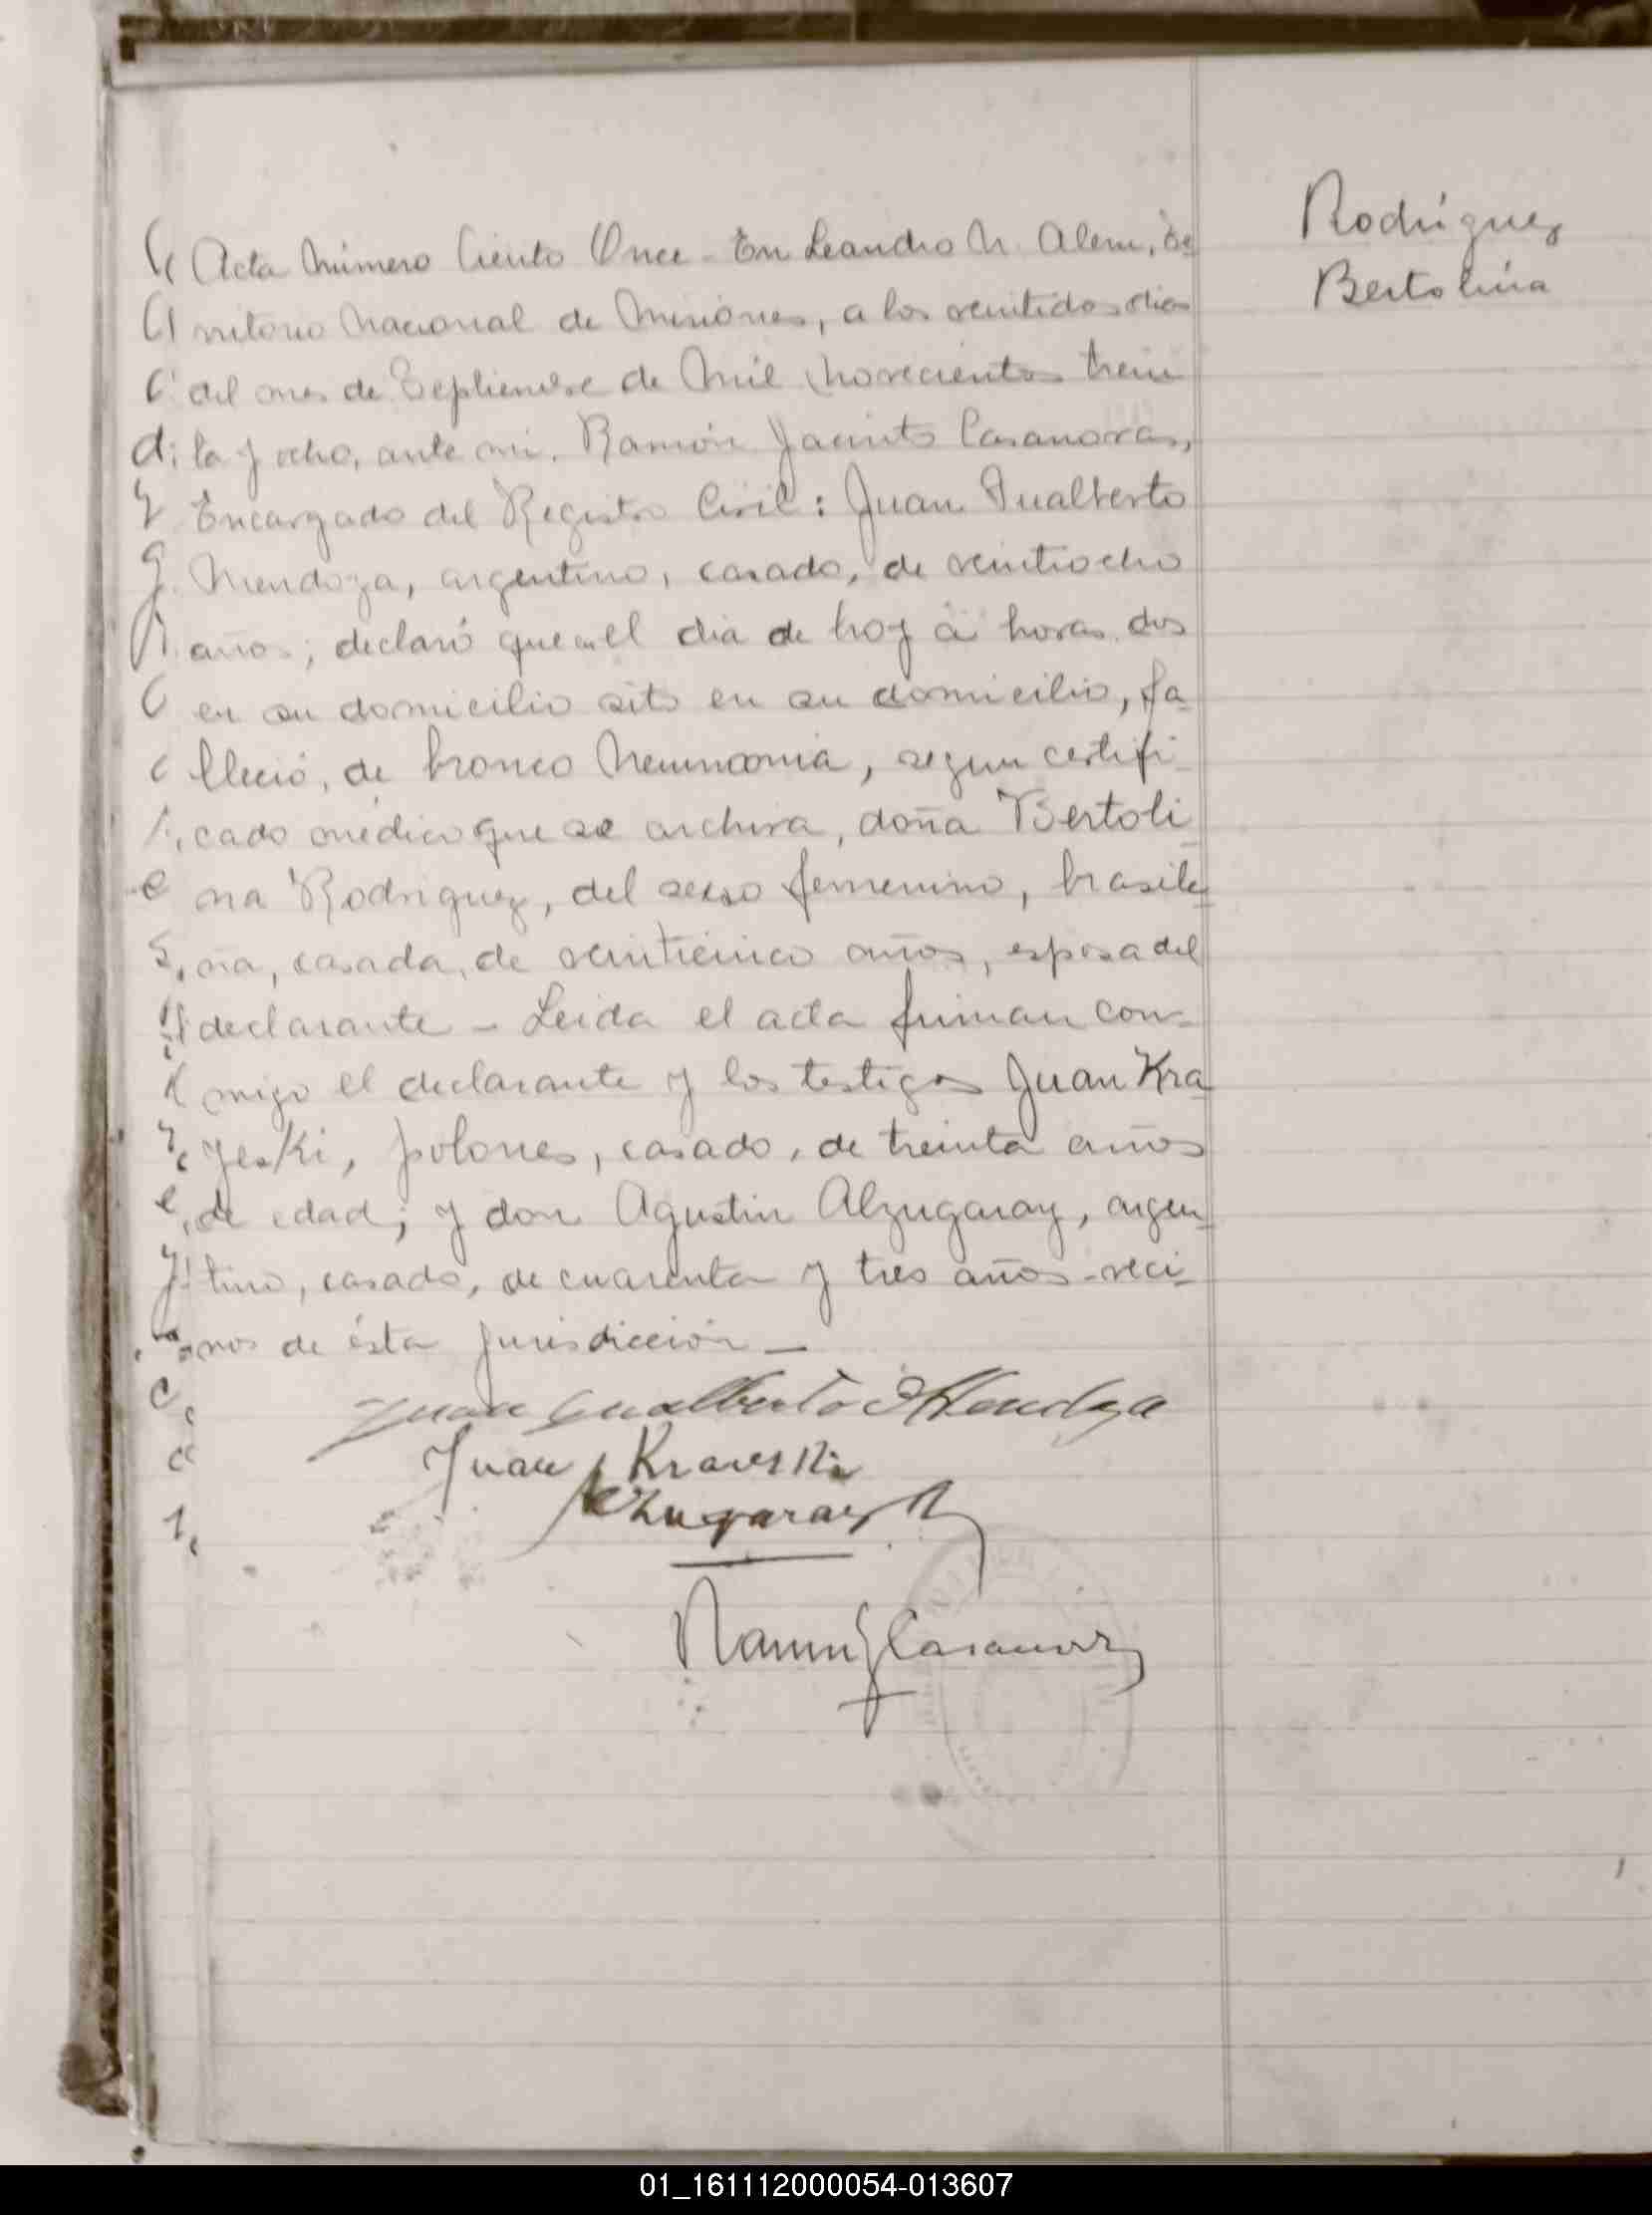 Rodríguez
Bertolina
Acta Número Ciento Once - En Leandro N. Alem, Te
rritorio Nacional de Misiones, a los veintidos dias
del mes de Septiembre de Mil Novecientos trein
ta y ocho, ante mi. Ramón Jacinto Casanovas,
Encargado del Registro Civil: Juan Gualberto
Mendoza, argentino, casado, de veintiocho
años; declaró que en el dia de hoy á horas dos
en su domicilio sito en su domicilio, fa
lleció, de bronco Neumonia, segun certifi
cado médico que se archiva, doña Bertoli
na Rodriguez, del sexo femenino, brasile
ña, casada, de veinticinco años, esposa del
declarante - Leida el acta firman con-
migo el declarante y los testigos Juan Kra
yeski, polones, casado, de treinta años
de edad; y don Agustin Alzugaray, argen
tino, casado, de cuarenta y tres años - veci-
nos de ésta jurisdicción -
Juan Gualberto Mendoza
Juan Kraveski
Alzugaray A
Ramon J Casanovas
01_161112000054-013607